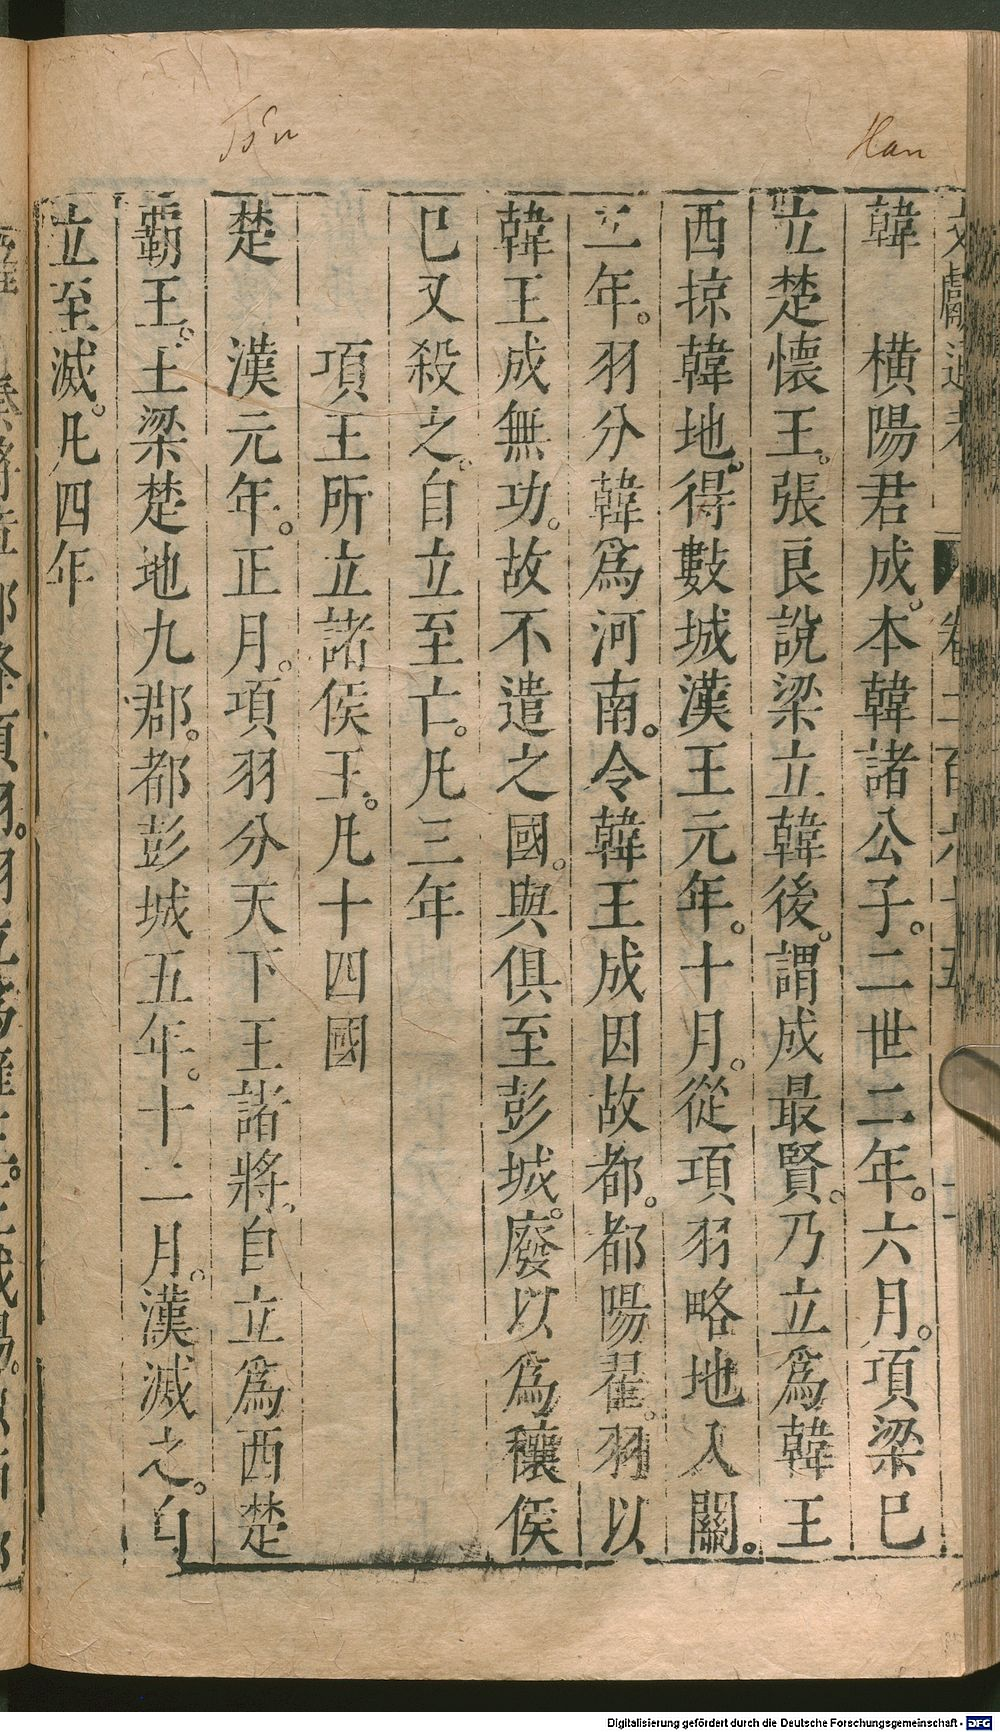 Han
Tsu
文獻通考 卷二百六十五
韓 橫陽君成。本韓諸公子。二世二年。六月。項梁已
立楚懷王。張良說梁立韓後。謂成最賢。乃立爲韓王
西掠韓地。得數城漢王元年。十月。從項羽略地入關。
二年。羽分韓爲河南。令韓王成因故都。都陽翟。羽以
韓王成無功。故不遣之國。與俱至彭城。廢以爲穰侯
已又殺之。自立至亡。凡三年
項王所立諸侯王。凡十四國
楚 漢元年。正月。項羽分天下王諸將。自立爲西楚
霸王。王梁楚地九郡。都彭城五年。十二月。漢滅之。自
立至滅。凡四年
Digitalisierung gefördert durch die Deutsche Forschungsgemeinschaft - DFG